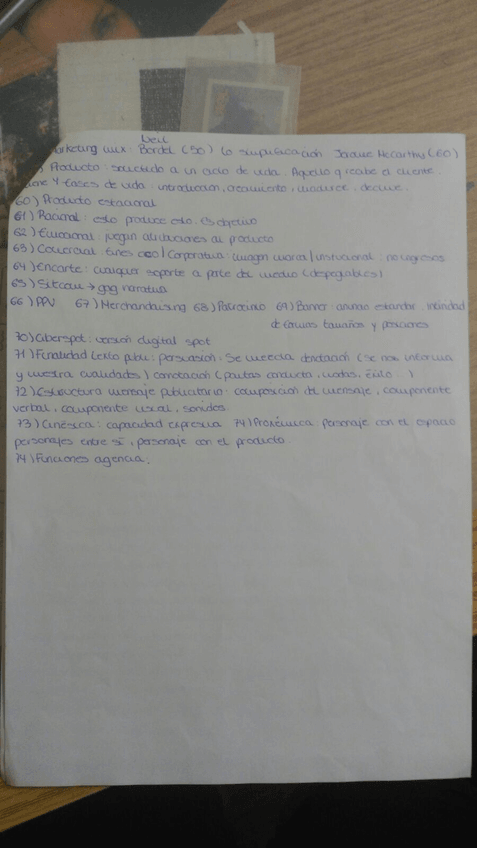 Neil
Marketing mix: Borden (50) la simplificación: Jerome McCarthy (60)
) Producto: sometido a un ciclo de vida. Aquello q recibe el cliente.
4 fases de vida: introducción, crecimiento, madurez, declive.
60) Producto estacional
61) Racional: esto produce esto. Es objetivo
62) Emocional: juegan atribuciones al producto
63) Comercial: fines / Corporativa: imagen marca / institucional: no ingresos
64) Encarte: cualquier soporte a parte del medio (despegables)
65) Sitcom → gag narrativa
66) PPV 67) Merchandaising 68) Patrocinio 69) Banner: anuncio estandar. infinidad
de formas tamaños y posiciones
70) Ciberspot: versión digital spot
71) Finalidad texto publi: persuasión. Se mezcla denotación (se nos informa
y muestra cualidades) connotación (pautas conducta, modas, éxito )
72) Estructura mensaje publicitario: composición del mensaje, componente
verbal, componente visual, sonidos.
73) Cinésica: capacidad expresiva 74) Proxémica. Personaje con el espacio
personajes entre sí, personaje con el producto.
74) Funciones agencia.